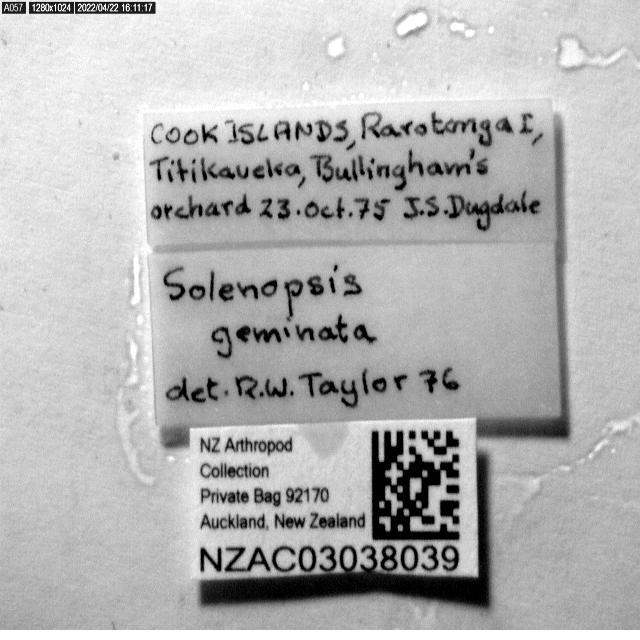 A057 1280x1024 2022/04/22 16:11:17
COOK ISLANDS, Rarotonga I,
Titikaveka, Bullingham's
orchard 23.Oct.75 J.S.Dugdale
Solenopsis
geminata
det. R.W. Taylor 76
NZ Arthropod
Collection
Private Bag 92170
Auckland, New Zealand
NZAC03038039